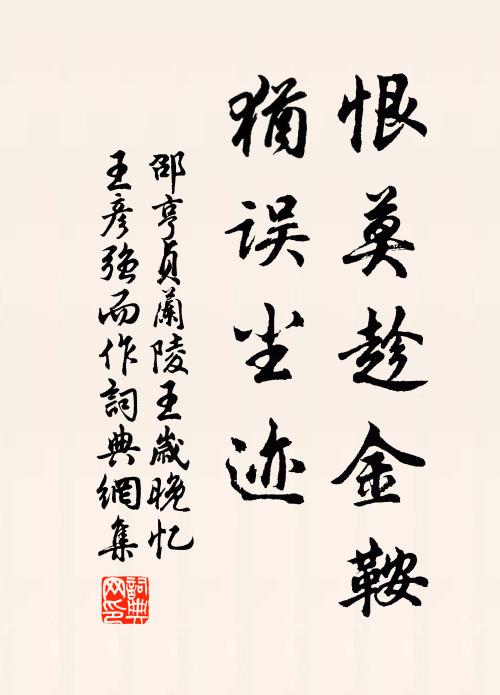 恨莫趁金鞍
犹误尘迹
邵亨贞蘭陵王歲晚忆
王彦强而作詞典網集
詞典网印